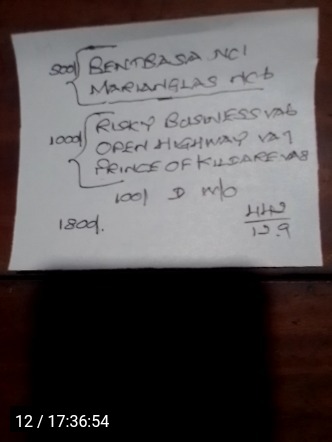 500/ { BENTBASA NC1
MARIANGLAS NC6
1000/ { RISKY BUSINESS VA6
OPEN HIGHWAY VA7
PRINCE OF KILDARE VA8
100/ D m/o
1800/.
442
12.9
12 / 17:36:54